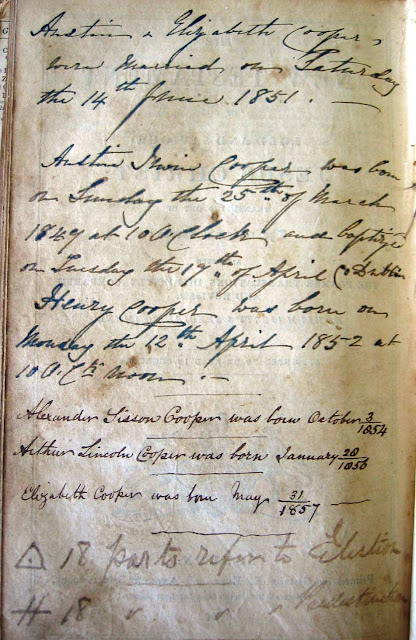 Austin & Elizabeth Cooper
were Married on Saturday
the 14th June 1851. —
Austin Irwin Cooper was born
on Sunday the 25th of March
1849 at 10 O.Clock and baptized
on Tuesday the 17th of April Co Dublin
Henry Cooper was born on
Monday the 12th April 1852 at
10 O.Ck noon. —
Alexander Sisson Cooper was born October 3/1854
Arthur Lincoln Cooper was born January 28/1856
Elizabeth Cooper was born May 31/1857 —
18 parts refer to Election
# 18 " " "